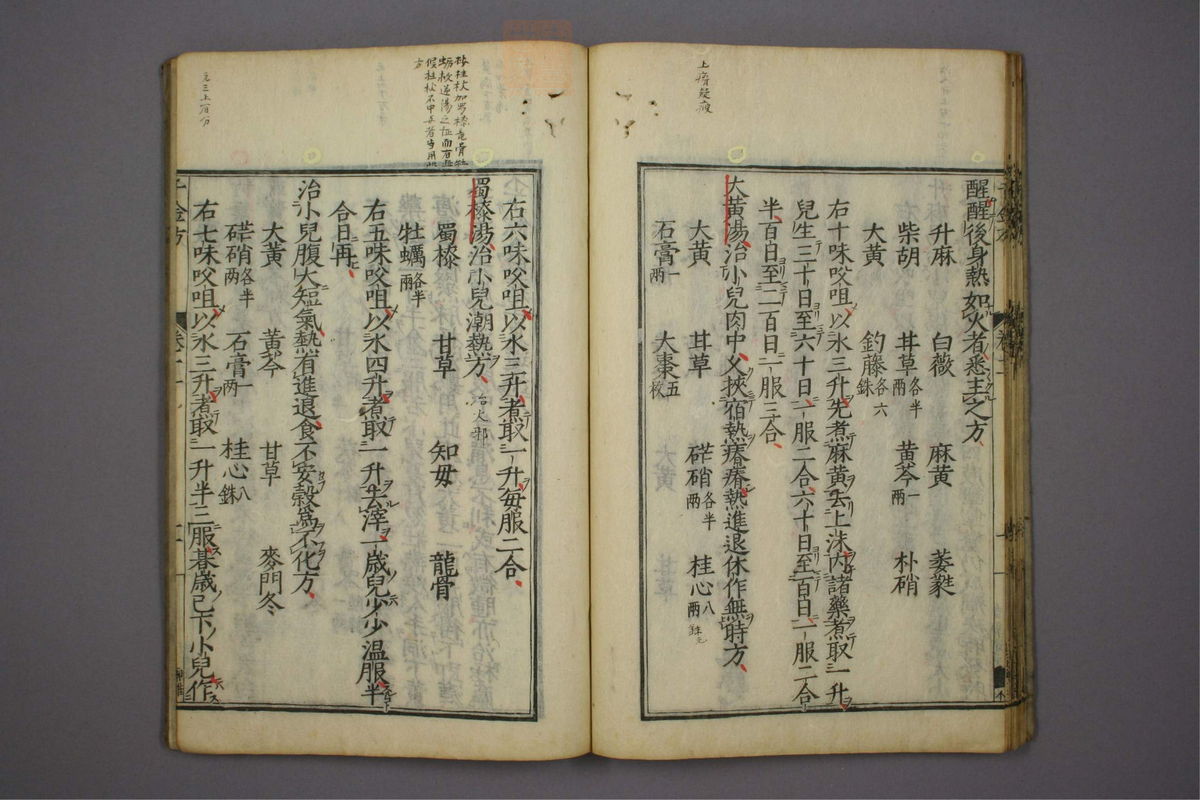 上瘠疑瘦
醒醒後身熱如火者悉主之方
升麻 白薇 麻黃 萎蕤
柴胡 甘草各半兩 黃芩一兩 朴硝
大黃 釣藤各六銖
右十味㕮咀以水三升先煮麻黃去上沫內諸藥煮取一升
兒生三十日至六十日一服二合六十日至百日一服二合
半百日至二百日一服三合
大黃湯治小兒肉中久挾宿熱瘠瘠熱進退休作無時方
大黃 甘草 硭硝各半兩 桂心八兩
石膏一兩 大棗五枚
右六味㕮咀以水三升煮取一升每服二合
蜀㯃湯治小兒潮熱方
蜀㯃 甘草 知母 龍骨
牡蠣各半兩
右五味㕮咀以水四升煮取一升去滓一歲兒少少溫服半
合日再
治小兒腹大短氣熱有進退食不安穀為不化方
大黃 黃芩 甘草 麥門冬
硭硝各半兩 石膏一兩 桂心八銖
右七味㕮咀以水三升煮取一升半三服暮歲已下小兒作
千金方